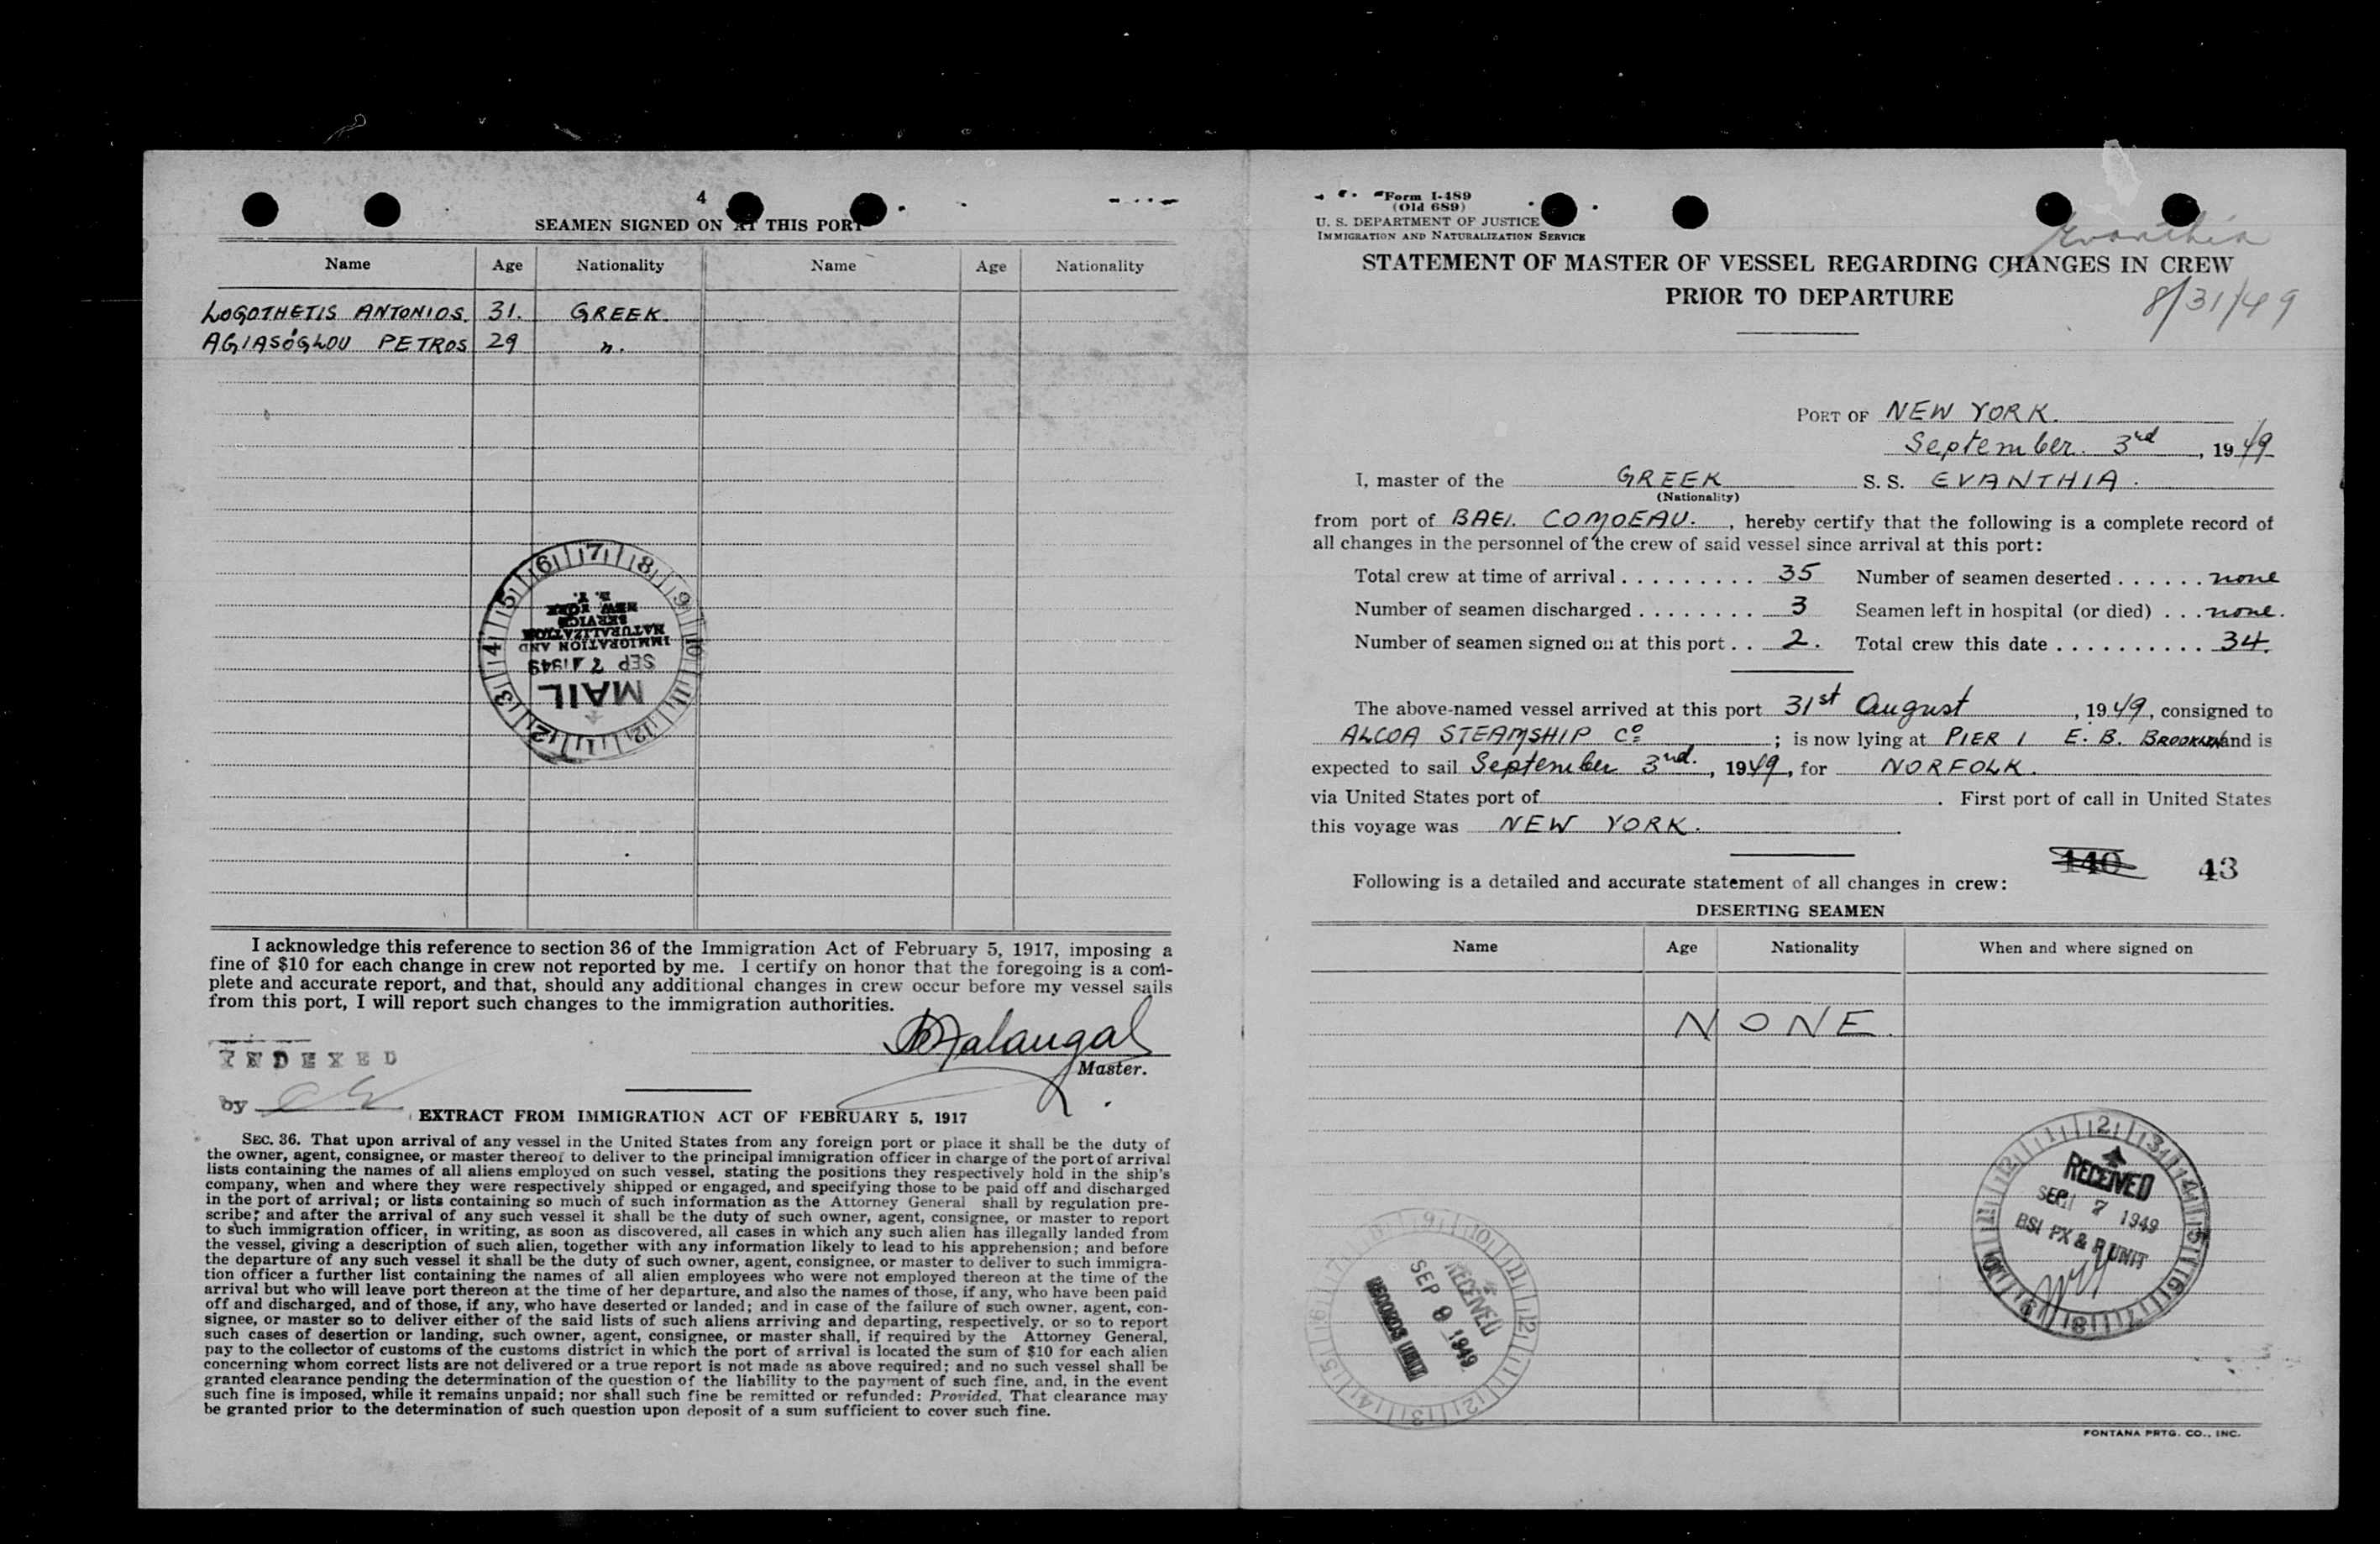 4
SEAMEN SIGNED ON AT THIS PORT
Name Age Nationality Name Age Nationality
LOGOTHETIS ANTONIOS. 31. GREEK.
AGIASOGLOU PETROS 29 ".
7 8 9 10 11 12 1 2 3 4 5 6
MAIL
SEP 7 1949
IMMIGRATION AND
NATURALIZATION
SERVICE
NEW YORK
N. Y.
I acknowledge this reference to section 36 of the Immigration Act of February 5, 1917, imposing a
fine of $10 for each change in crew not reported by me. I certify on honor that the foregoing is a com-
plete and accurate report, and that, should any additional changes in crew occur before my vessel sails
from this port, I will report such changes to the immigration authorities.
Master.
INDEXED
by
EXTRACT FROM IMMIGRATION ACT OF FEBRUARY 5, 1917
SEC. 36. That upon arrival of any vessel in the United States from any foreign port or place it shall be the duty of
the owner, agent, consignee, or master thereof to deliver to the principal immigration officer in charge of the port of arrival
lists containing the names of all aliens employed on such vessel, stating the positions they respectively hold in the ship's
company, when and where they were respectively shipped or engaged, and specifying those to be paid off and discharged
in the port of arrival; or lists containing so much of such information as the Attorney General shall by regulation pre-
scribe; and after the arrival of any such vessel it shall be the duty of such owner, agent, consignee, or master to report
to such immigration officer, in writing, as soon as discovered, all cases in which any such alien has illegally landed from
the vessel, giving a description of such alien, together with any information likely to lead to his apprehension; and before
the departure of any such vessel it shall be the duty of such owner, agent, consignee, or master to deliver to such immigra-
tion officer a further list containing the names of all alien employees who were not employed thereon at the time of the
arrival but who will leave port thereon at the time of her departure, and also the names of those, if any, who have been paid
off and discharged, and of those, if any, who have deserted or landed; and in case of the failure of such owner, agent, con-
signee, or master so to deliver either of the said lists of such aliens arriving and departing, respectively, or so to report
such cases of desertion or landing, such owner, agent, consignee, or master shall, if required by the Attorney General,
pay to the collector of customs of the customs district in which the port of arrival is located the sum of $10 for each alien
concerning whom correct lists are not delivered or a true report is not made as above required; and no such vessel shall be
granted clearance pending the determination of the question of the liability to the payment of such fine, and, in the event
such fine is imposed, while it remains unpaid; nor shall such fine be remitted or refunded: Provided, That clearance may
be granted prior to the determination of such question upon deposit of a sum sufficient to cover such fine.
Form I-489
(Old 689)
U. S. DEPARTMENT OF JUSTICE
IMMIGRATION AND NATURALIZATION SERVICE
Evanthia
STATEMENT OF MASTER OF VESSEL REGARDING CHANGES IN CREW
PRIOR TO DEPARTURE
8/31/49
PORT OF NEW YORK.
September. 3rd, 1949
I, master of the GREEK S. S. EVANTHIA.
(Nationality)
from port of BAEI. COMOEAU., hereby certify that the following is a complete record of
all changes in the personnel of the crew of said vessel since arrival at this port:
Total crew at time of arrival . . . . . . . . . . 35 Number of seamen deserted . . . . . . none
Number of seamen discharged . . . . . . . . 3 Seamen left in hospital (or died) . . . none.
Number of seamen signed on at this port . . 2. Total crew this date . . . . . . . . . . 34.
The above-named vessel arrived at this port 31st August, 1949, consigned to
ALCOA STEAMSHIP Co; is now lying at PIER 1 E. B. BROOKLYN and is
expected to sail September 3rd., 1949, for NORFOLK.
via United States port of . First port of call in United States
this voyage was NEW YORK.
140 43
Following is a detailed and accurate statement of all changes in crew:
DESERTING SEAMEN
Name Age Nationality When and where signed on
NONE.
RECEIVED
SEP 7 1949
BSI PX & R UNIT
RECEIVED
SEP 9 1949
RECORDS UNIT
FONTANA PRTG. CO., INC.